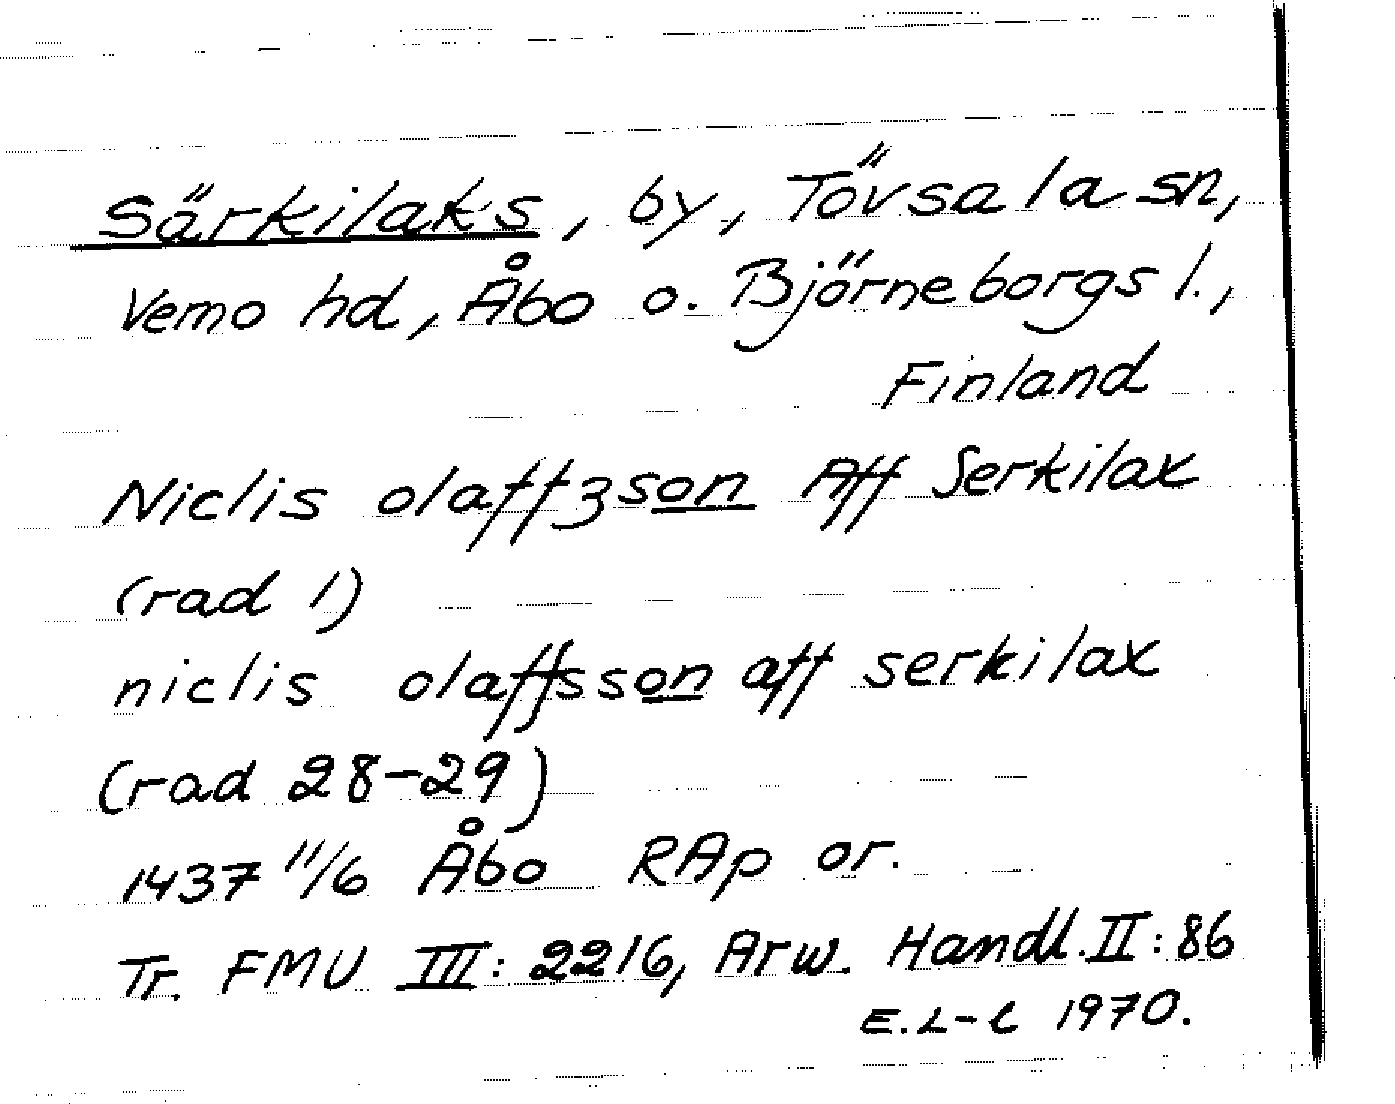 Särkilaks, by, Tövsala sn,
Vemo hd, Åbo o. Björneborgs l.,
Finland
Niclis olaffzson Aff Serkilax
(rad 1)
niclis olaffsson aff serkilax
(rad 28-29)
1437 11/6 Åbo RAp or.
Tr. FMU III: 2216, Arw. Handl. II: 86
E. L-l 1970.